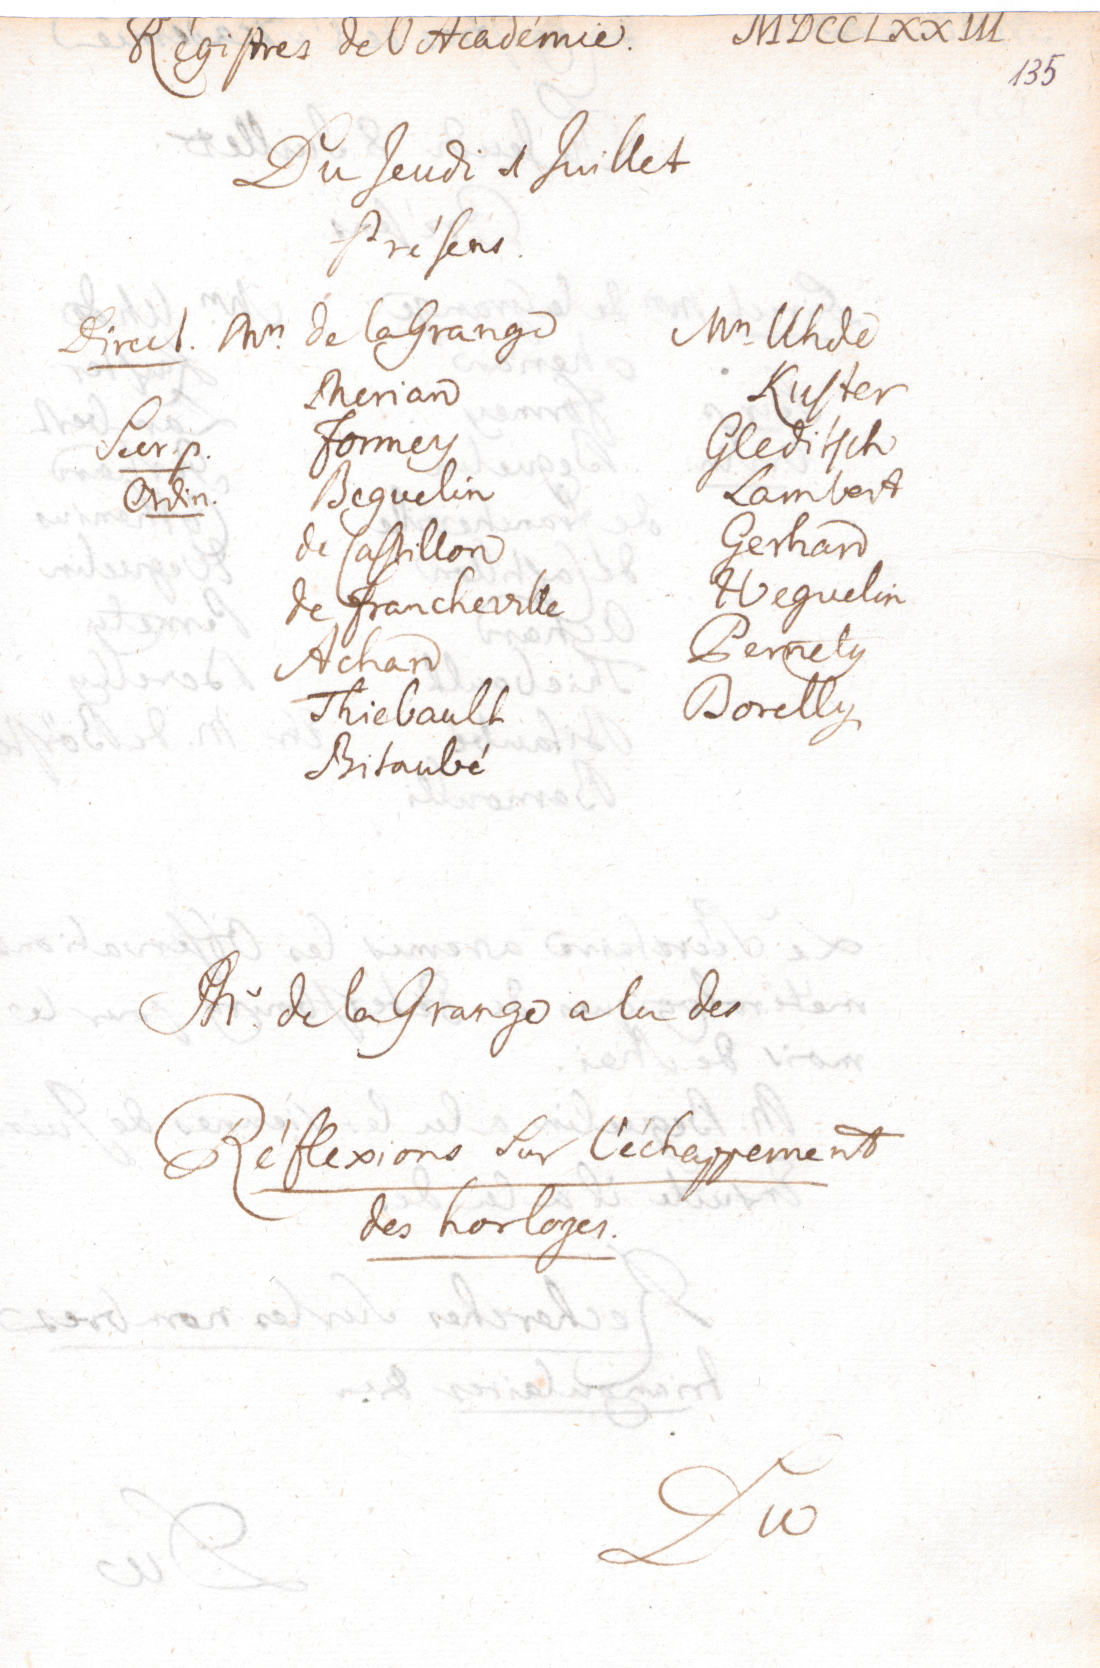 Régistres de l'Académie. MDCCLXXIII
135
Du Jeudi 1 Juillet
Présens.
Direct. Mrs. de la Grange
Merian
Secr. p. Formey
Ordin. Beguelin
de Castillon
de Francheville
Achard
Thiebault
Bitaubé
Mrs Uhde
Kuster
Gleditsch
Lambert
Gerhard
Weguelin
Pernety
Borelly
Mr. de la Grange a lu des
Réflexions sur l'échappement
des horloges.
Du